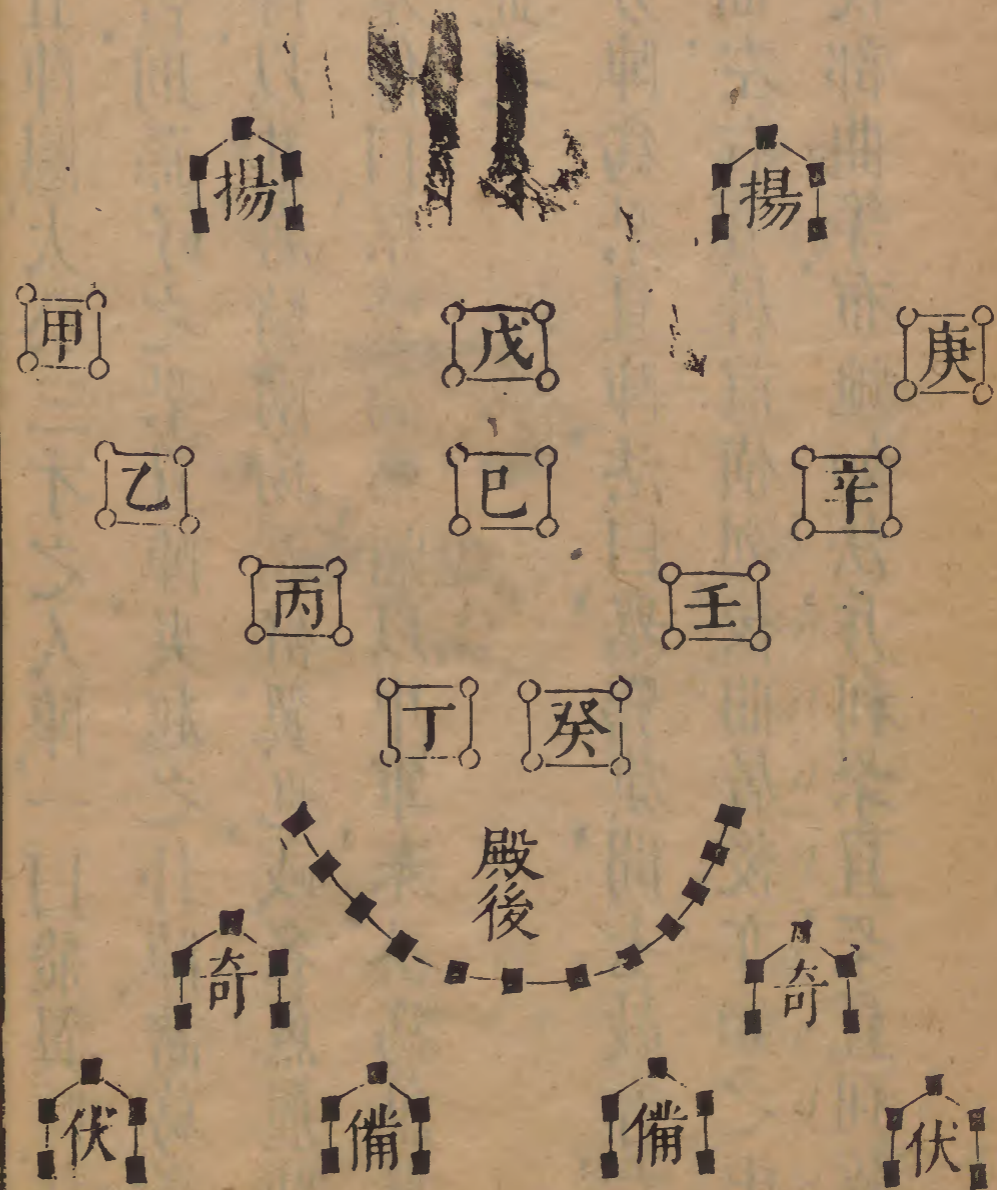 揚 揚
甲 戊 庚
乙 巳 辛
丙 壬
丁 癸
殿後
奇 奇
伏 備 備 伏